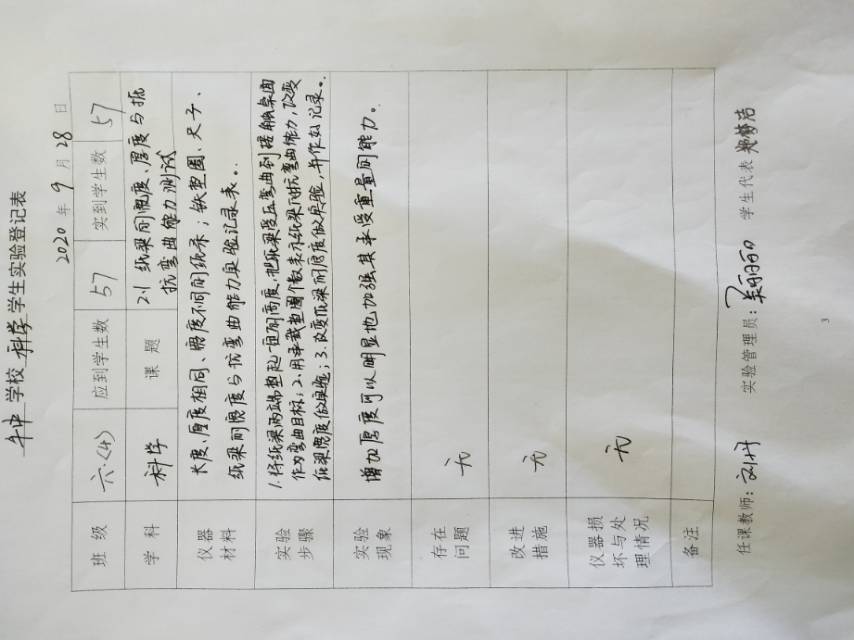 牛中学校科学学生实验登记表
2020年9月28日
班级 六.(4) 应到学生数 57 实到学生数 57
学科 科学 课题 2.1 纸梁的宽度、厚度与抗
抗弯曲能力测试
仪器
材料
长度、厚度相同、宽度不同的纸条；铁垫圈、尺子、
纸梁的宽度与抗弯曲能力实验记录表。
实验
步骤
1.将纸梁两端垫起一定的高度，把纸梁受压弯曲到接触桌面
作为弯曲目标；2.用承载垫圈个数表示纸梁的抗弯曲能力，改变
纸梁宽度做实验；3.改变纸梁的厚度做实验，并作好记录。
实验
现象
增加厚度可以明显地加强其承受重量的能力。
存在
问题
无
改进
措施
无
仪器损
坏与处
理情况
无
备注
任课教师：刘丹 实验管理员： 学生代表
3